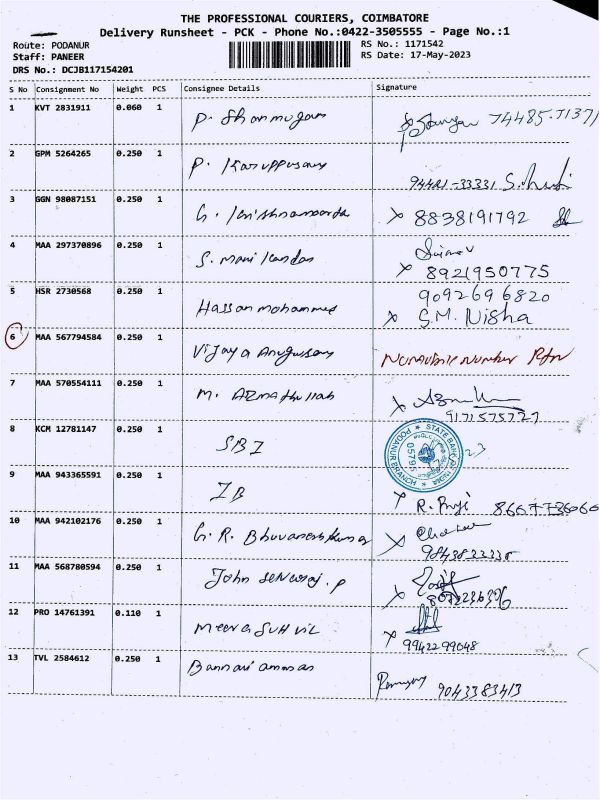 THE PROFESSIONAL COURIERS, COIMBATORE
Delivery Runsheet - PCK - Phone No.:0422-3505555 - Page No.:1
Route: PODANUR RS No.: 1171542
Staff: PANEER RS Date: 17-May-2023
DRS No.: DCJB117154201
S No Consignment No Weight PCS Consignee Details Signature
1 KVT 2831911 0.060 1 P. Shanmugam
2 GPM 5264265 0.250 1 P. Karuppusamy
3 GGN 98087151 0.250 1 G. Krishnamoorthy X 8838191792
4 MAA 297370896 0.250 1 S. Manikandan
X 8921950775
5 HSR 2730568 0.250 1 Hassan mohammed 9092696820
X S.M. Nisha
6 MAA 567794584 0.250 1 Vijaya Number Rtn
7 MAA 570554111 0.250 1 M. Azmathullah X
9171575727
8 KCM 12781147 0.250 1 SBI STATE BANK OF INDIA PODANUR BRANCH 05795
9 MAA 943365591 0.250 1 IB
R.
10 MAA 942102176 0.250 1 G. R. X
11 MAA 568780594 0.250 1 John P X
12 PRO 14761391 0.110 1 Meera X
9942299048
13 TVL 2584612 0.250 1 Bannari amman 9043383413